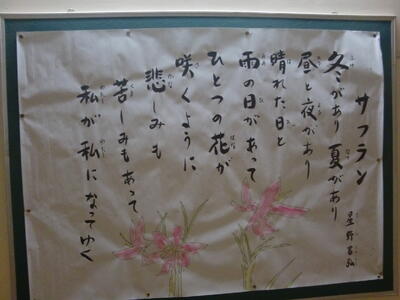 サフラン
星野富弘
冬があり夏があり
昼と夜があり
晴れた日と
雨の日があって
ひとつの花が
咲くように
悲しみも
苦しみもあって
私が私になってゆく